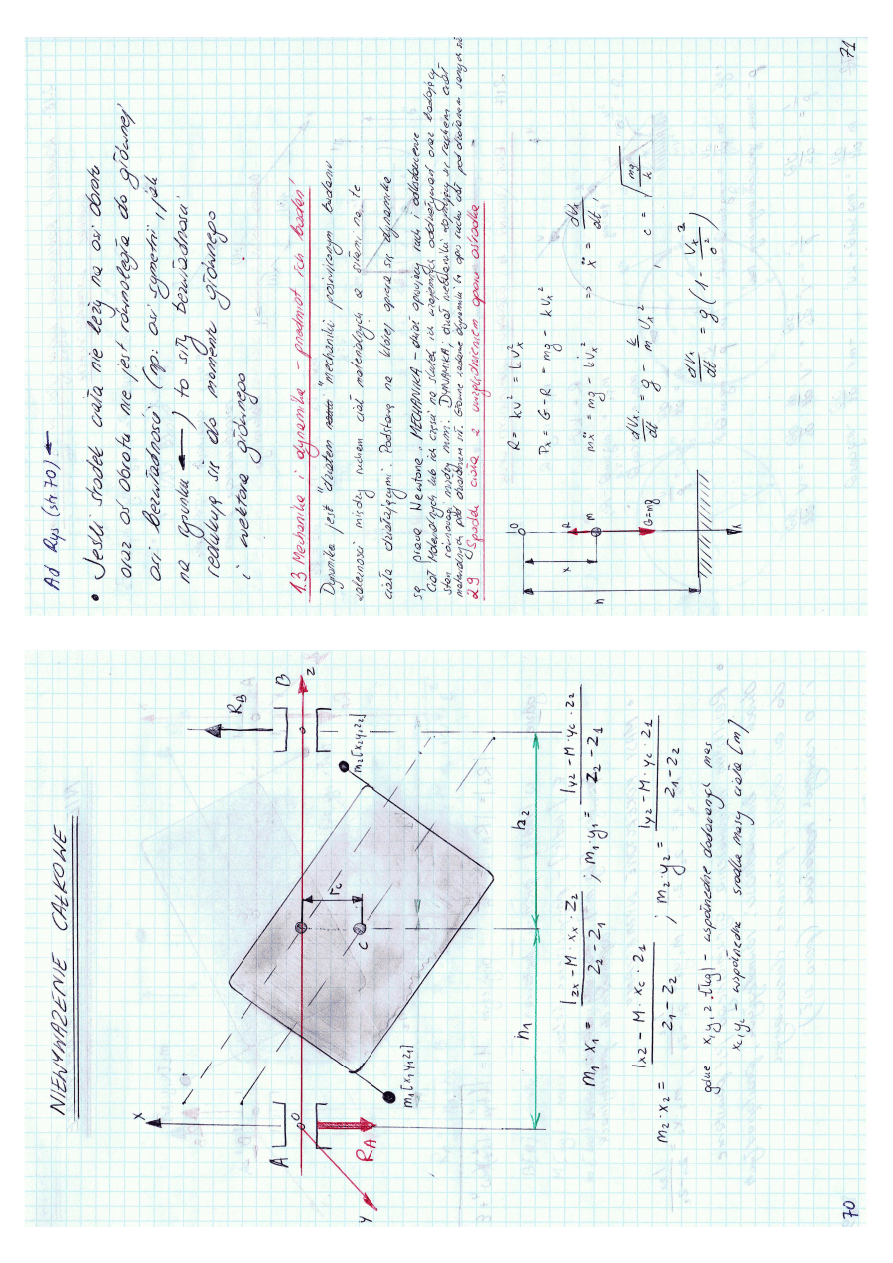 NIEWYWAŻENIE CAŁKOWE
X
A
O
Y
RA
RB
B
Z
m1[x1y1z1]
m2[x2y2z2]
rc
C
h1
h2
m1·x1 = Izx - M·xx·Z2 / Z2 - Z1 ; m1·y1 = Iyz - M·yc·Z2 / Z2 - Z1
m2·x2 = Ixz - M·xc·Z1 / Z1 - Z2 ; m2·y2 = Iyz - M·yc·Z1 / Z1 - Z2
gdzie x,y1,2 [kg] - współrzędne dodawanych mas
xc,yc - współrzędne środka masy ciała [m]
70
Ad Rys (str 70)
• Jeśli środek ciała nie leży na osi obrotu
oraz oś obrotu nie jest równoległa do głównej
osi bezwładności (np: osi symetrii, jak
na rysunku) to siły bezwładności
redukują się do momentu głównego
i wektora głównego
1.3 Mechanika i dynamika - przedmiot ich badań
Dynamika jest "działem mechaniki poświęconym badaniu
zależności między ruchem ciał materialnych a siłami na te
ciała działającymi. Podstawą na której opiera się dynamika
są prawa Newtona. MECHANIKA - dział opisujący ruch i odkształcenie
ciał materialnych lub ich części na skutek ich wzajemnych oddziaływań oraz badający
stan równowagi między nimi. DYNAMIKA, dział mechaniki zajmujący się ruchem ciał
materialnych pod działaniem sił. Główne zadanie dynamiki to opis ruchu ciał pod działaniem
29 Spadek ciała z uwzględnieniem oporu ośrodka
O
R
m
x
h
G=mg
X
R = kv² = kvx²
Px = G - R = mg - kvx²
mẍ = mg - kvx² => ẍ = dvx/dt,
dvx/dt = g - k/m vx² , c = √mg/k
dvx/dt = g(1 - vx²/c²)
71